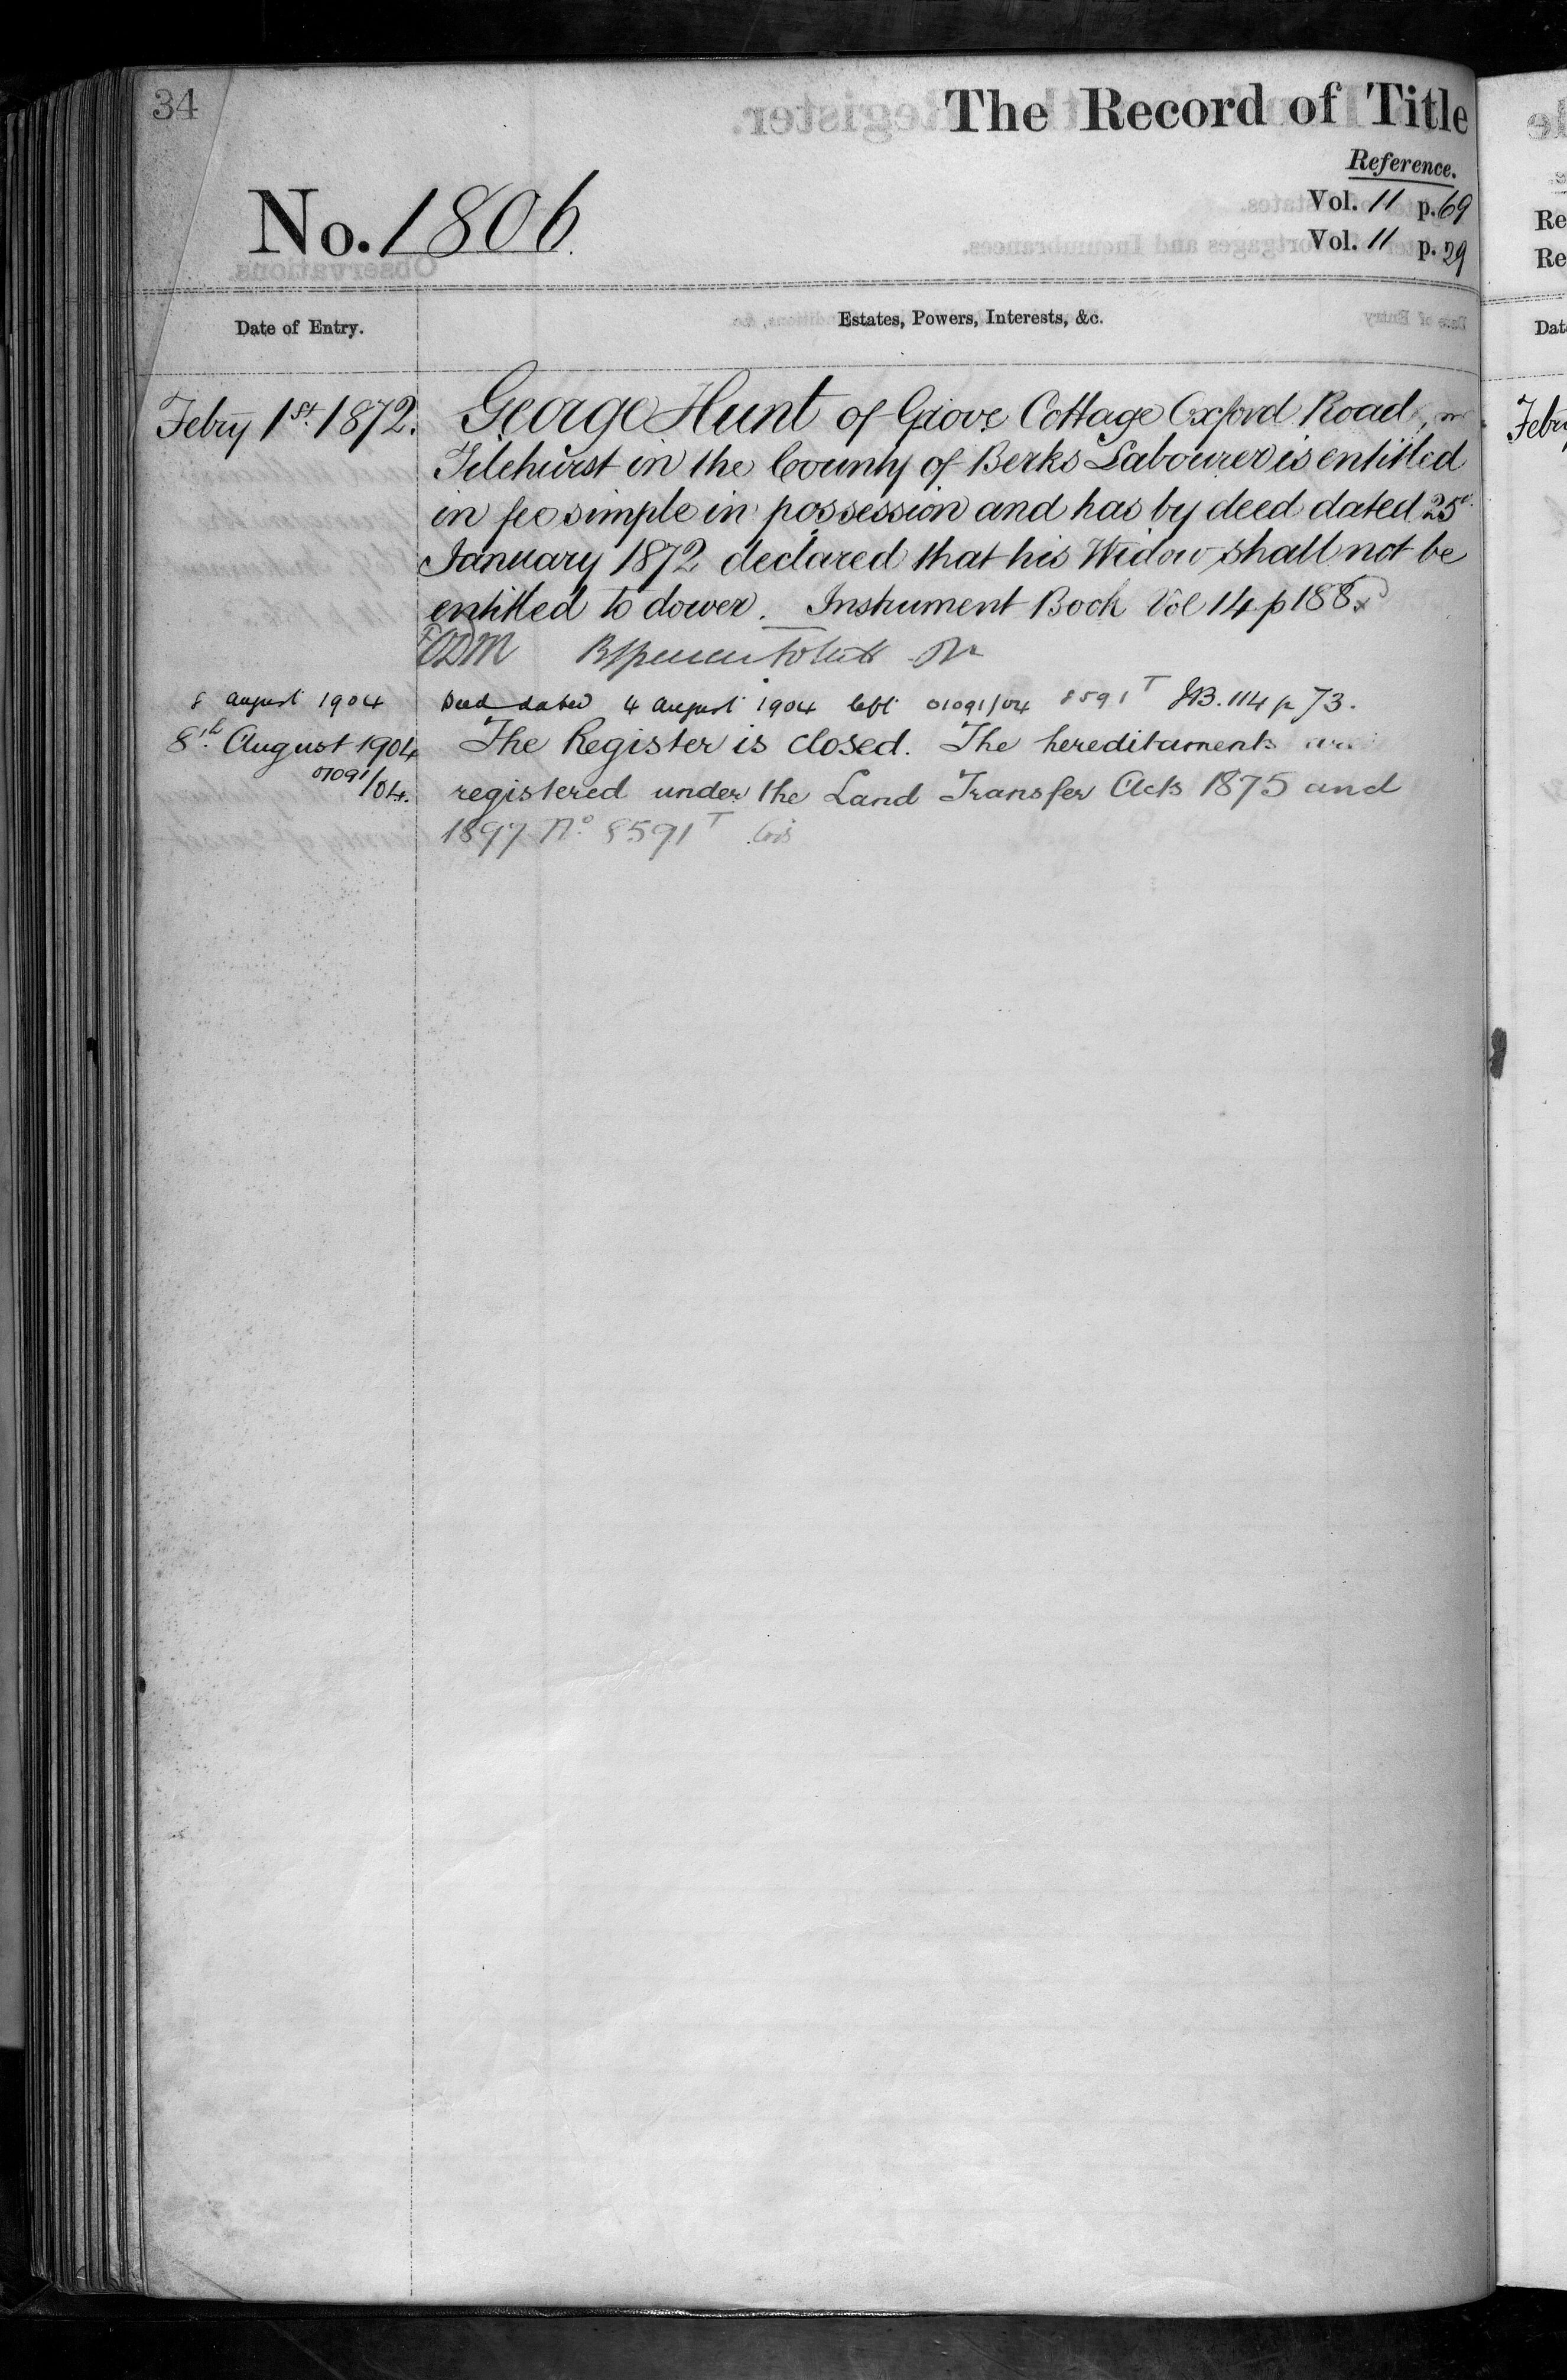 34
The Record of Title
Reference.
No. 1806.
Vol. 11 p. 69
Vol. 11 p. 29
Date of Entry.
Estates, Powers, Interests, &c.
Febry 1st. 1872.
George Hunt of Grove Cottage Oxford Road,
Tilehurst in the County of Berks Labourer is entitled
in fee simple in possession and has by deed dated 25th
January 1872 declared that his Widow shall not be
entitled to dower. Instrument Book Vol 14 p 188.
8 August 1904
Deed dated 4 August 1904 left 01091/04 8591T JB. 114 p 73.
8th. August 1904
01091/04.
The Register is closed. The hereditaments are
registered under the Land Transfer Acts 1875 and
1897 No 8591T
Re
Re
Dat
Febr